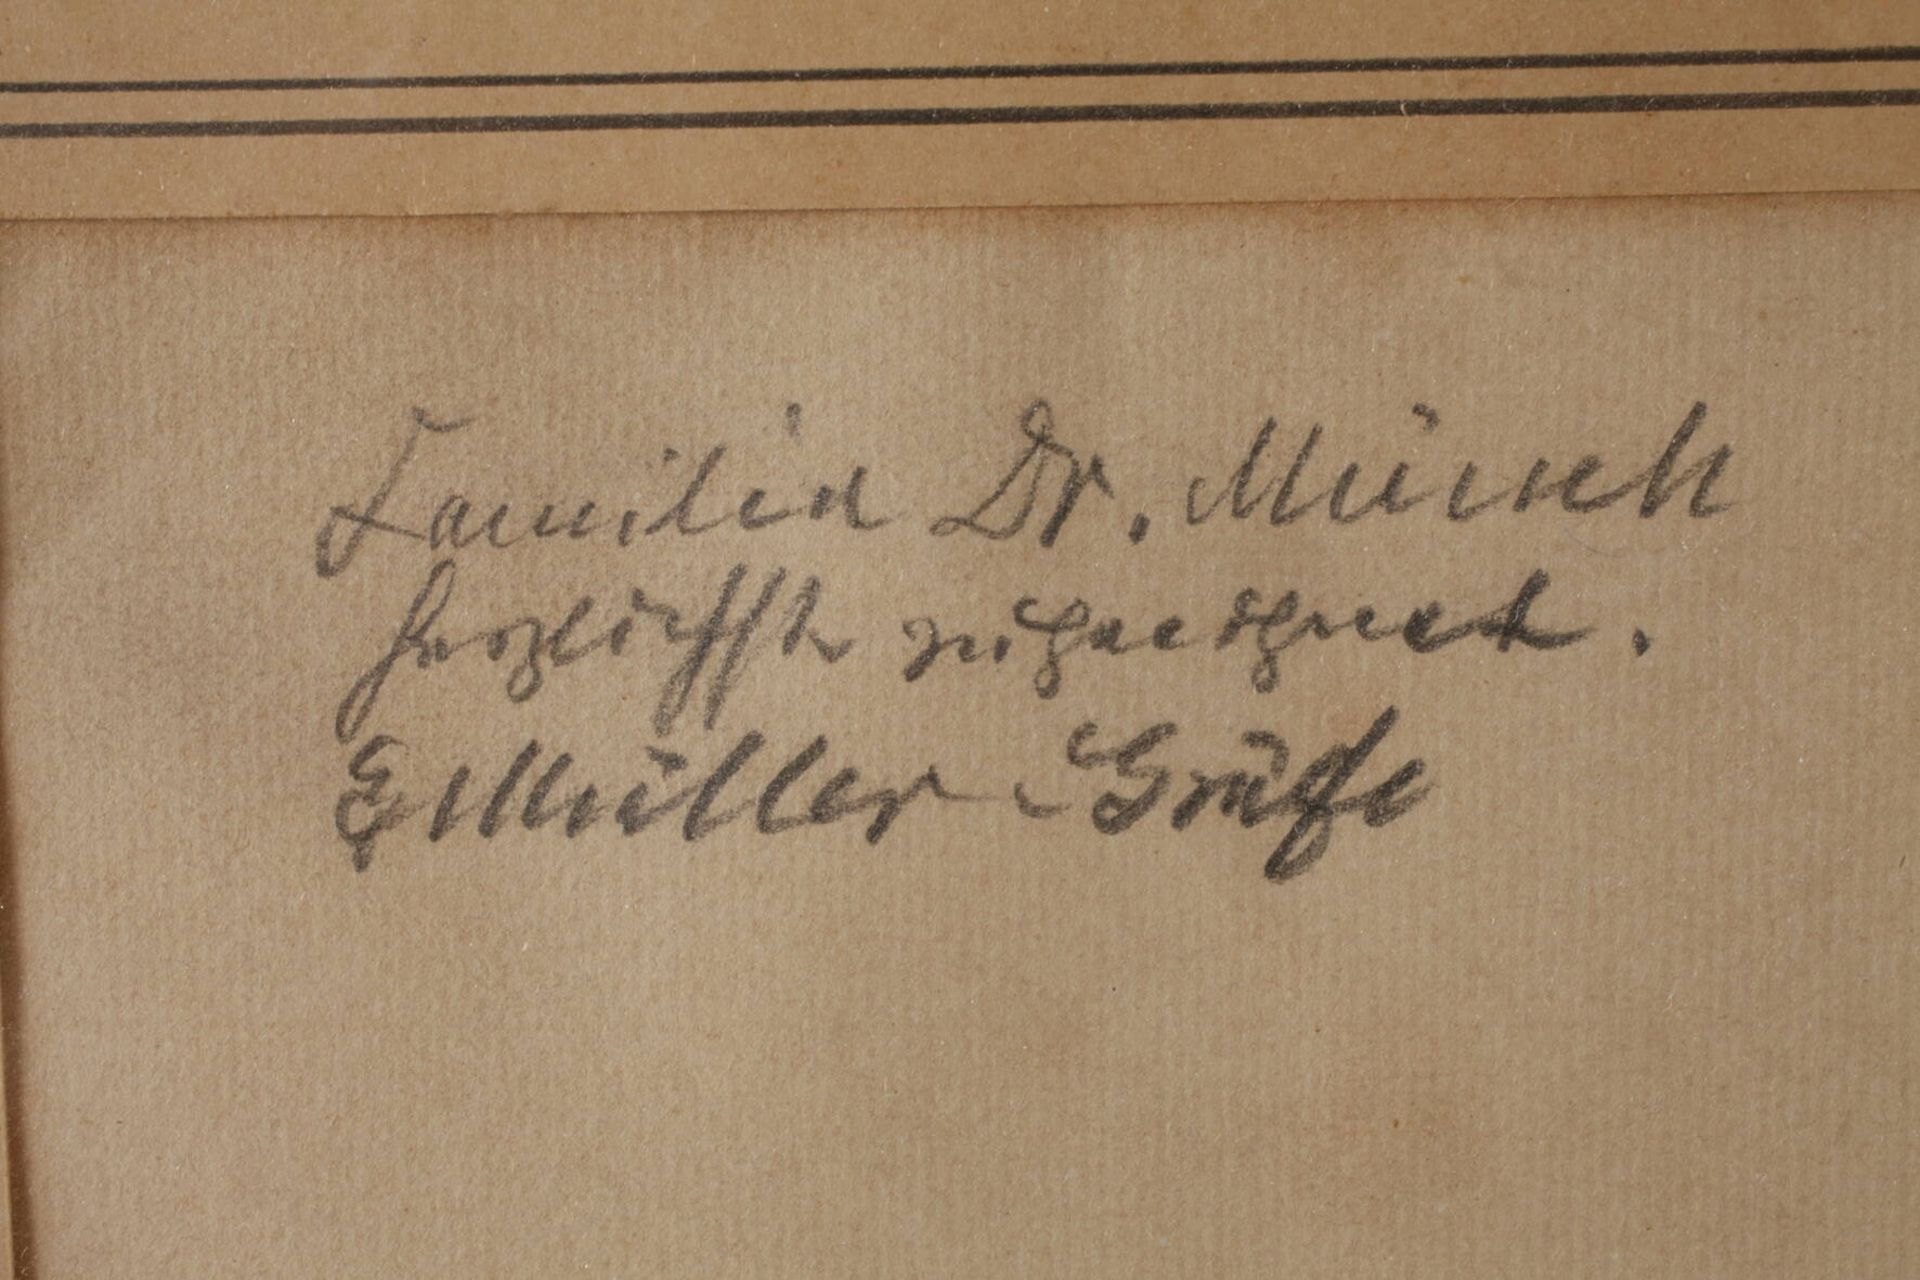 Familie Dr. Münch
herzlichst zugeeignet.
E Müller Gräfe